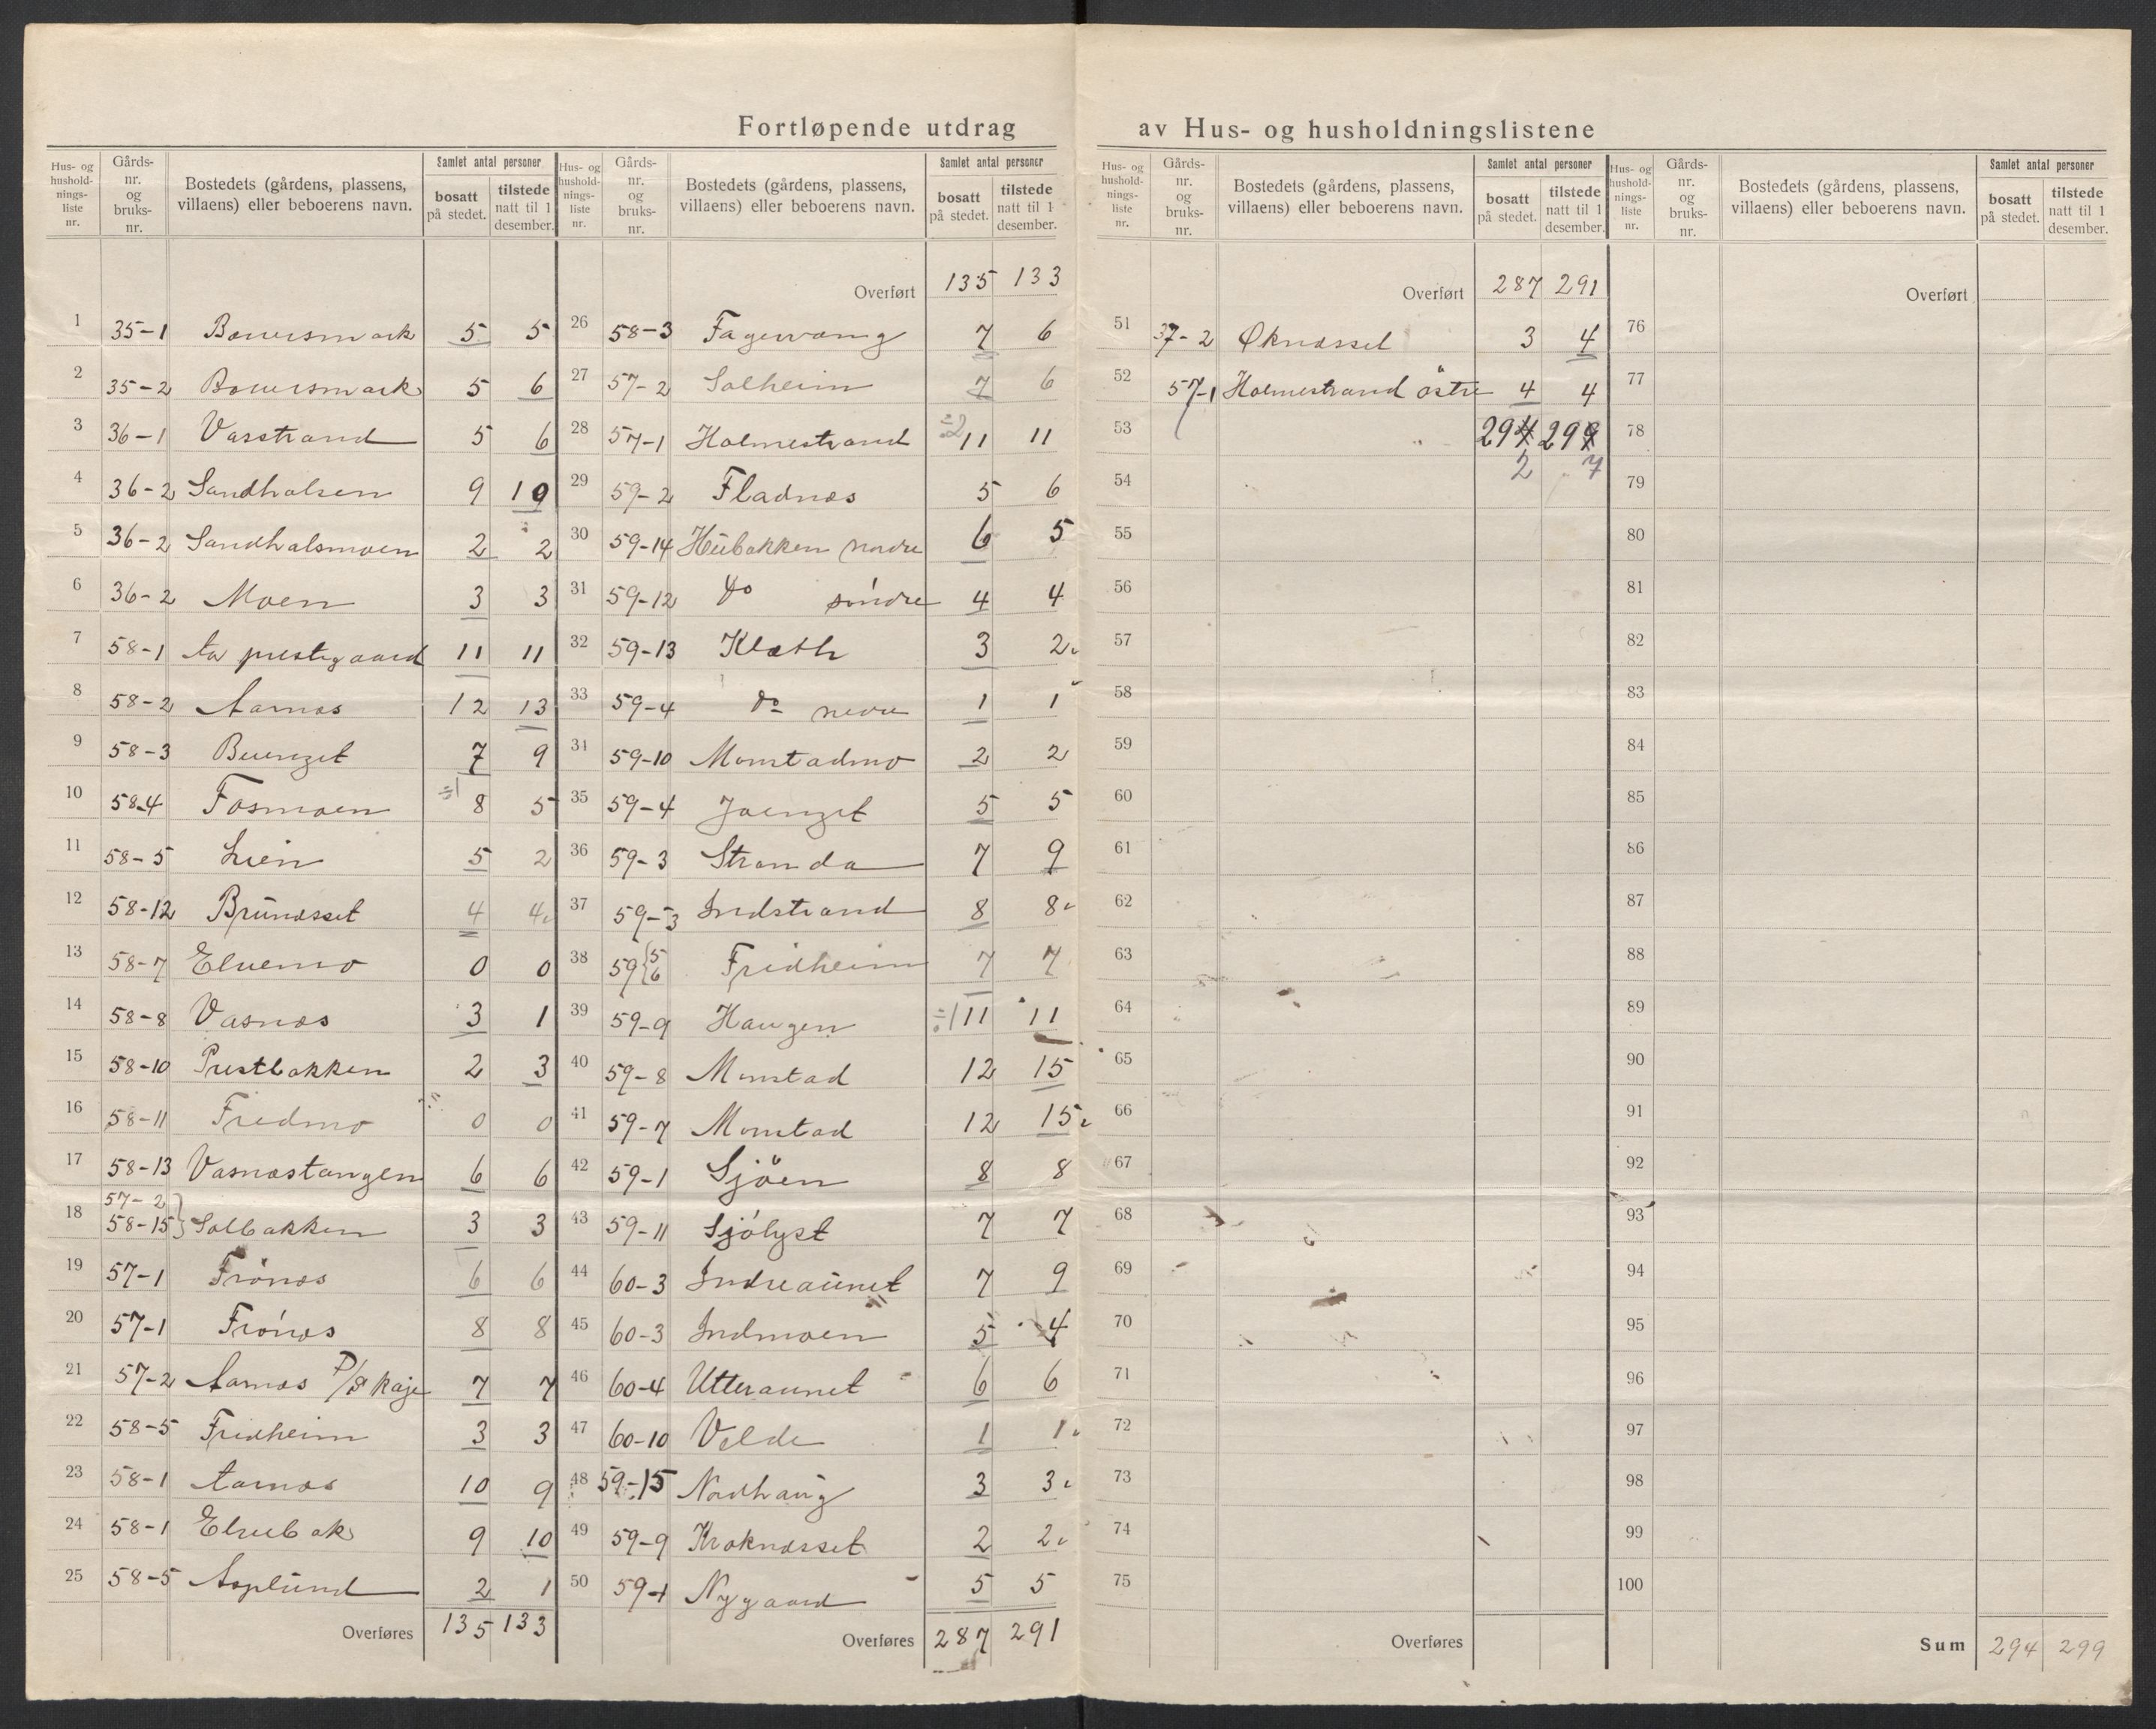 Fortløpende utdrag av Hus- og husholdningslistene
Hus- og hushold-nings-liste nr. Gårds-nr. og bruks-nr. Bostedets (gårdens, plassens, villaens) eller beboerens navn. Samlet antal personer bosatt på stedet. tilstede natt til 1 desember.
1 35-1 Bouersmark 5 5
2 35-2 Bouersmark 5 6
3 36-1 Vasstrand 5 6
4 36-2 Sandhalsen 9 10
5 36-2 Sandhalsmoen 2 2
6 36-2 Moen 3 3
7 58-1 Aa prestegaard 11 11
8 58-2 Aarnæs 12 13
9 58-3 Buenget 7 9
10 58-4 Fosmoen ÷1 8 5
11 58-5 Lien 5 2
12 58-12 Brunæsset 4 4
13 58-7 Elvemo 0 0
14 58-8 Vasnæs 3 1
15 58-10 Prestbakken 2 3
16 58-11 Fredmo 0 0
17 58-13 Vasnæstangen 6 6
57-2
18 58-15 } Solbakken 3 3
19 57-1 Frönæs 6 6
20 57-1 Frónæs 8 8
21 57-2 Aarnæs P/S Kaje 7 7
22 58-5 Fredheim 3 3
23 58-1 Aarnæs 10 9
24 58-1 Elvebak 9 10
25 58-5 Asplund 2 1
Overføres 135 133
Hus- og hushold-nings-liste nr. Gårds-nr. og bruks-nr. Bostedets (gårdens, plassens, villaens) eller beboerens navn. Samlet antal personer bosatt på stedet. tilstede natt til 1 desember.
Overført 135 133
26 58-3 Fagervang 7 6
27 57-2 Solheim 7 6
28 57-1 Holmestrand ÷2 11 11
29 59-2 Fladnæs 5 6
30 59-14 Heibakken nordre 6 5
31 59-12 do söndre 4 4
32 59-13 Kleth 3 2
33 59-4 do nedre 1 1
34 59-10 Momstadmo 2 2
35 59-4 Joenget 5 5
36 59-3 Stranda 7 9
37 59-3 Indstrand 8 8
38 59{5 6 Fridheim 7 7
39 59-9 Haugen ÷1 11 11
40 59-8 Momstad 12 15
41 59-7 Momstad 12 15
42 59-1 Sjöen 8 8
43 59-11 Sjólyst 7 7
44 60-3 Indreaunet 7 9
45 60-3 Indmoen 5 4
46 60-4 Utteraunet 6 6
47 60-10 Velde 1 1
48 59-15 Nordhaug 3 3
49 59-9 Kroknæsset 2 2
50 59-1 Nygaard 5 5
Overføres 287 291
Hus- og hushold-nings-liste nr. Gårds-nr. og bruks-nr. Bostedets (gårdens, plassens, villaens) eller beboerens navn. Samlet antal personer bosatt på stedet. tilstede natt til 1 desember.
Overført 287 291
51 37-2 Øknæsset 3 4
52 57-1 Holmestrand östre 4 4
53 294 299
54 2 7
55
56
57
58
59
60
61
62
63
64
65
66
67
68
69
70
71
72
73
74
75
Overføres
Hus- og hushold-nings-liste nr. Gårds-nr. og bruks-nr. Bostedets (gårdens, plassens, villaens) eller beboerens navn. Samlet antal personer bosatt på stedet. tilstede natt til 1 desember.
Overført
76
77
78
79
80
81
82
83
84
85
86
87
88
89
90
91
92
93
94
95
96
97
98
99
100
Sum 294 299